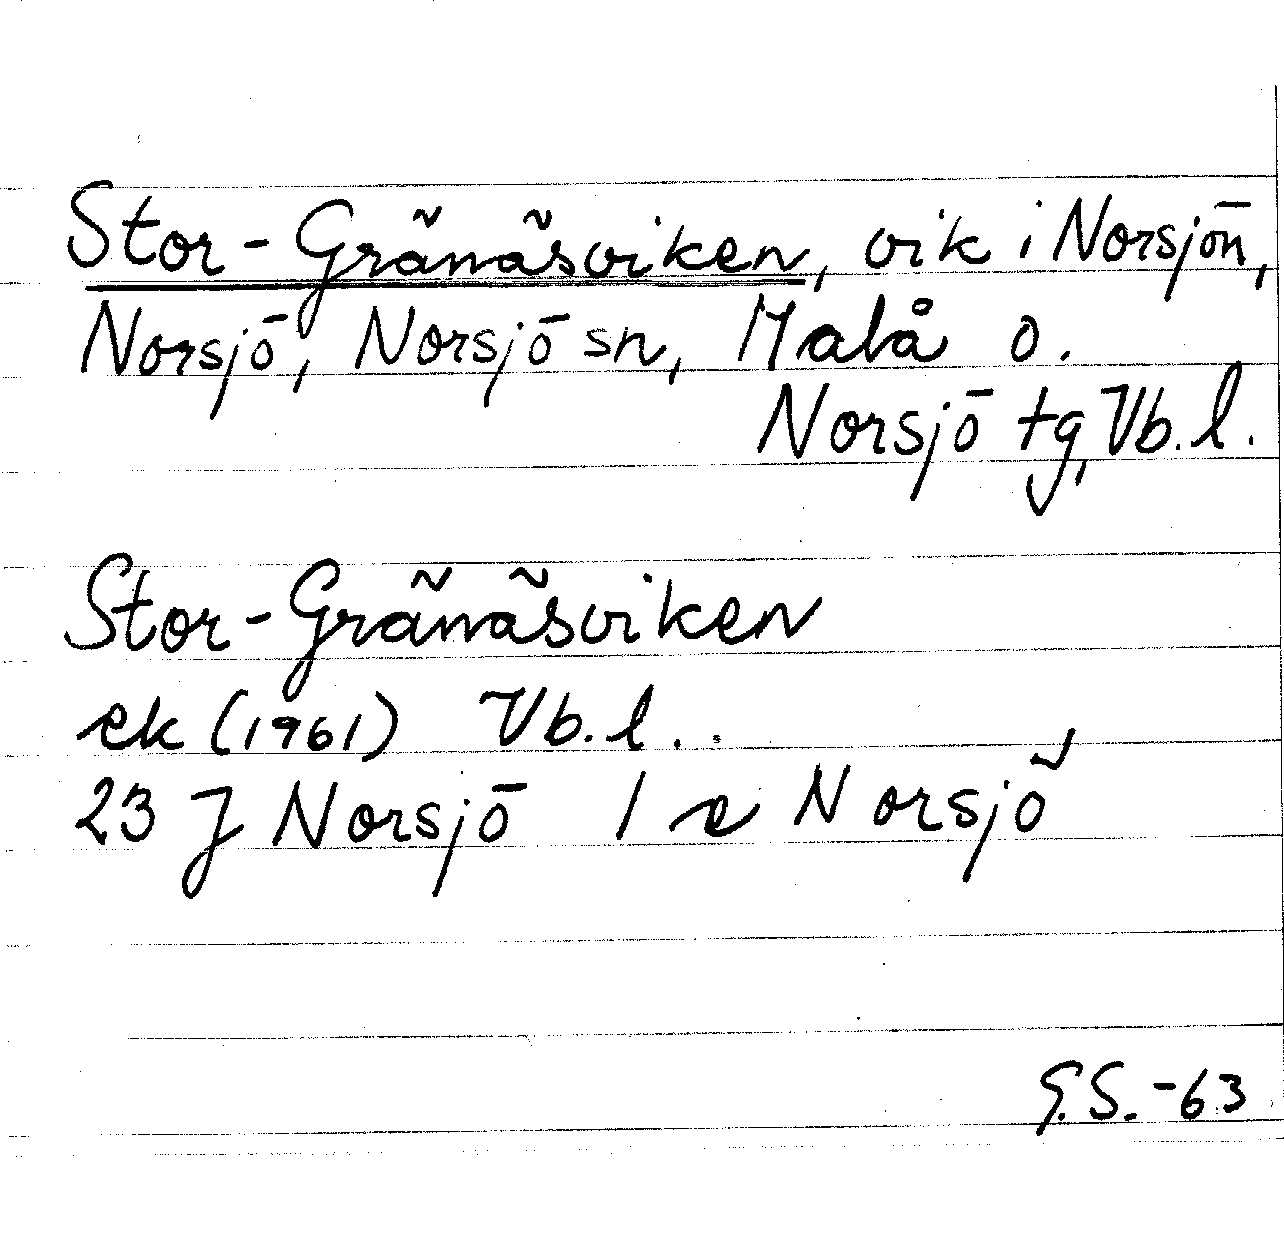 Stor-Gränäsviken, vik i Norsjön,
Norsjö, Norsjö sn, Malå o.
Norsjö tg, Vb. l.
Stor-Gränäsviken
ek (1961) Vb. l..
23 J Norsjö 1 e Norsjö
G.S.-63